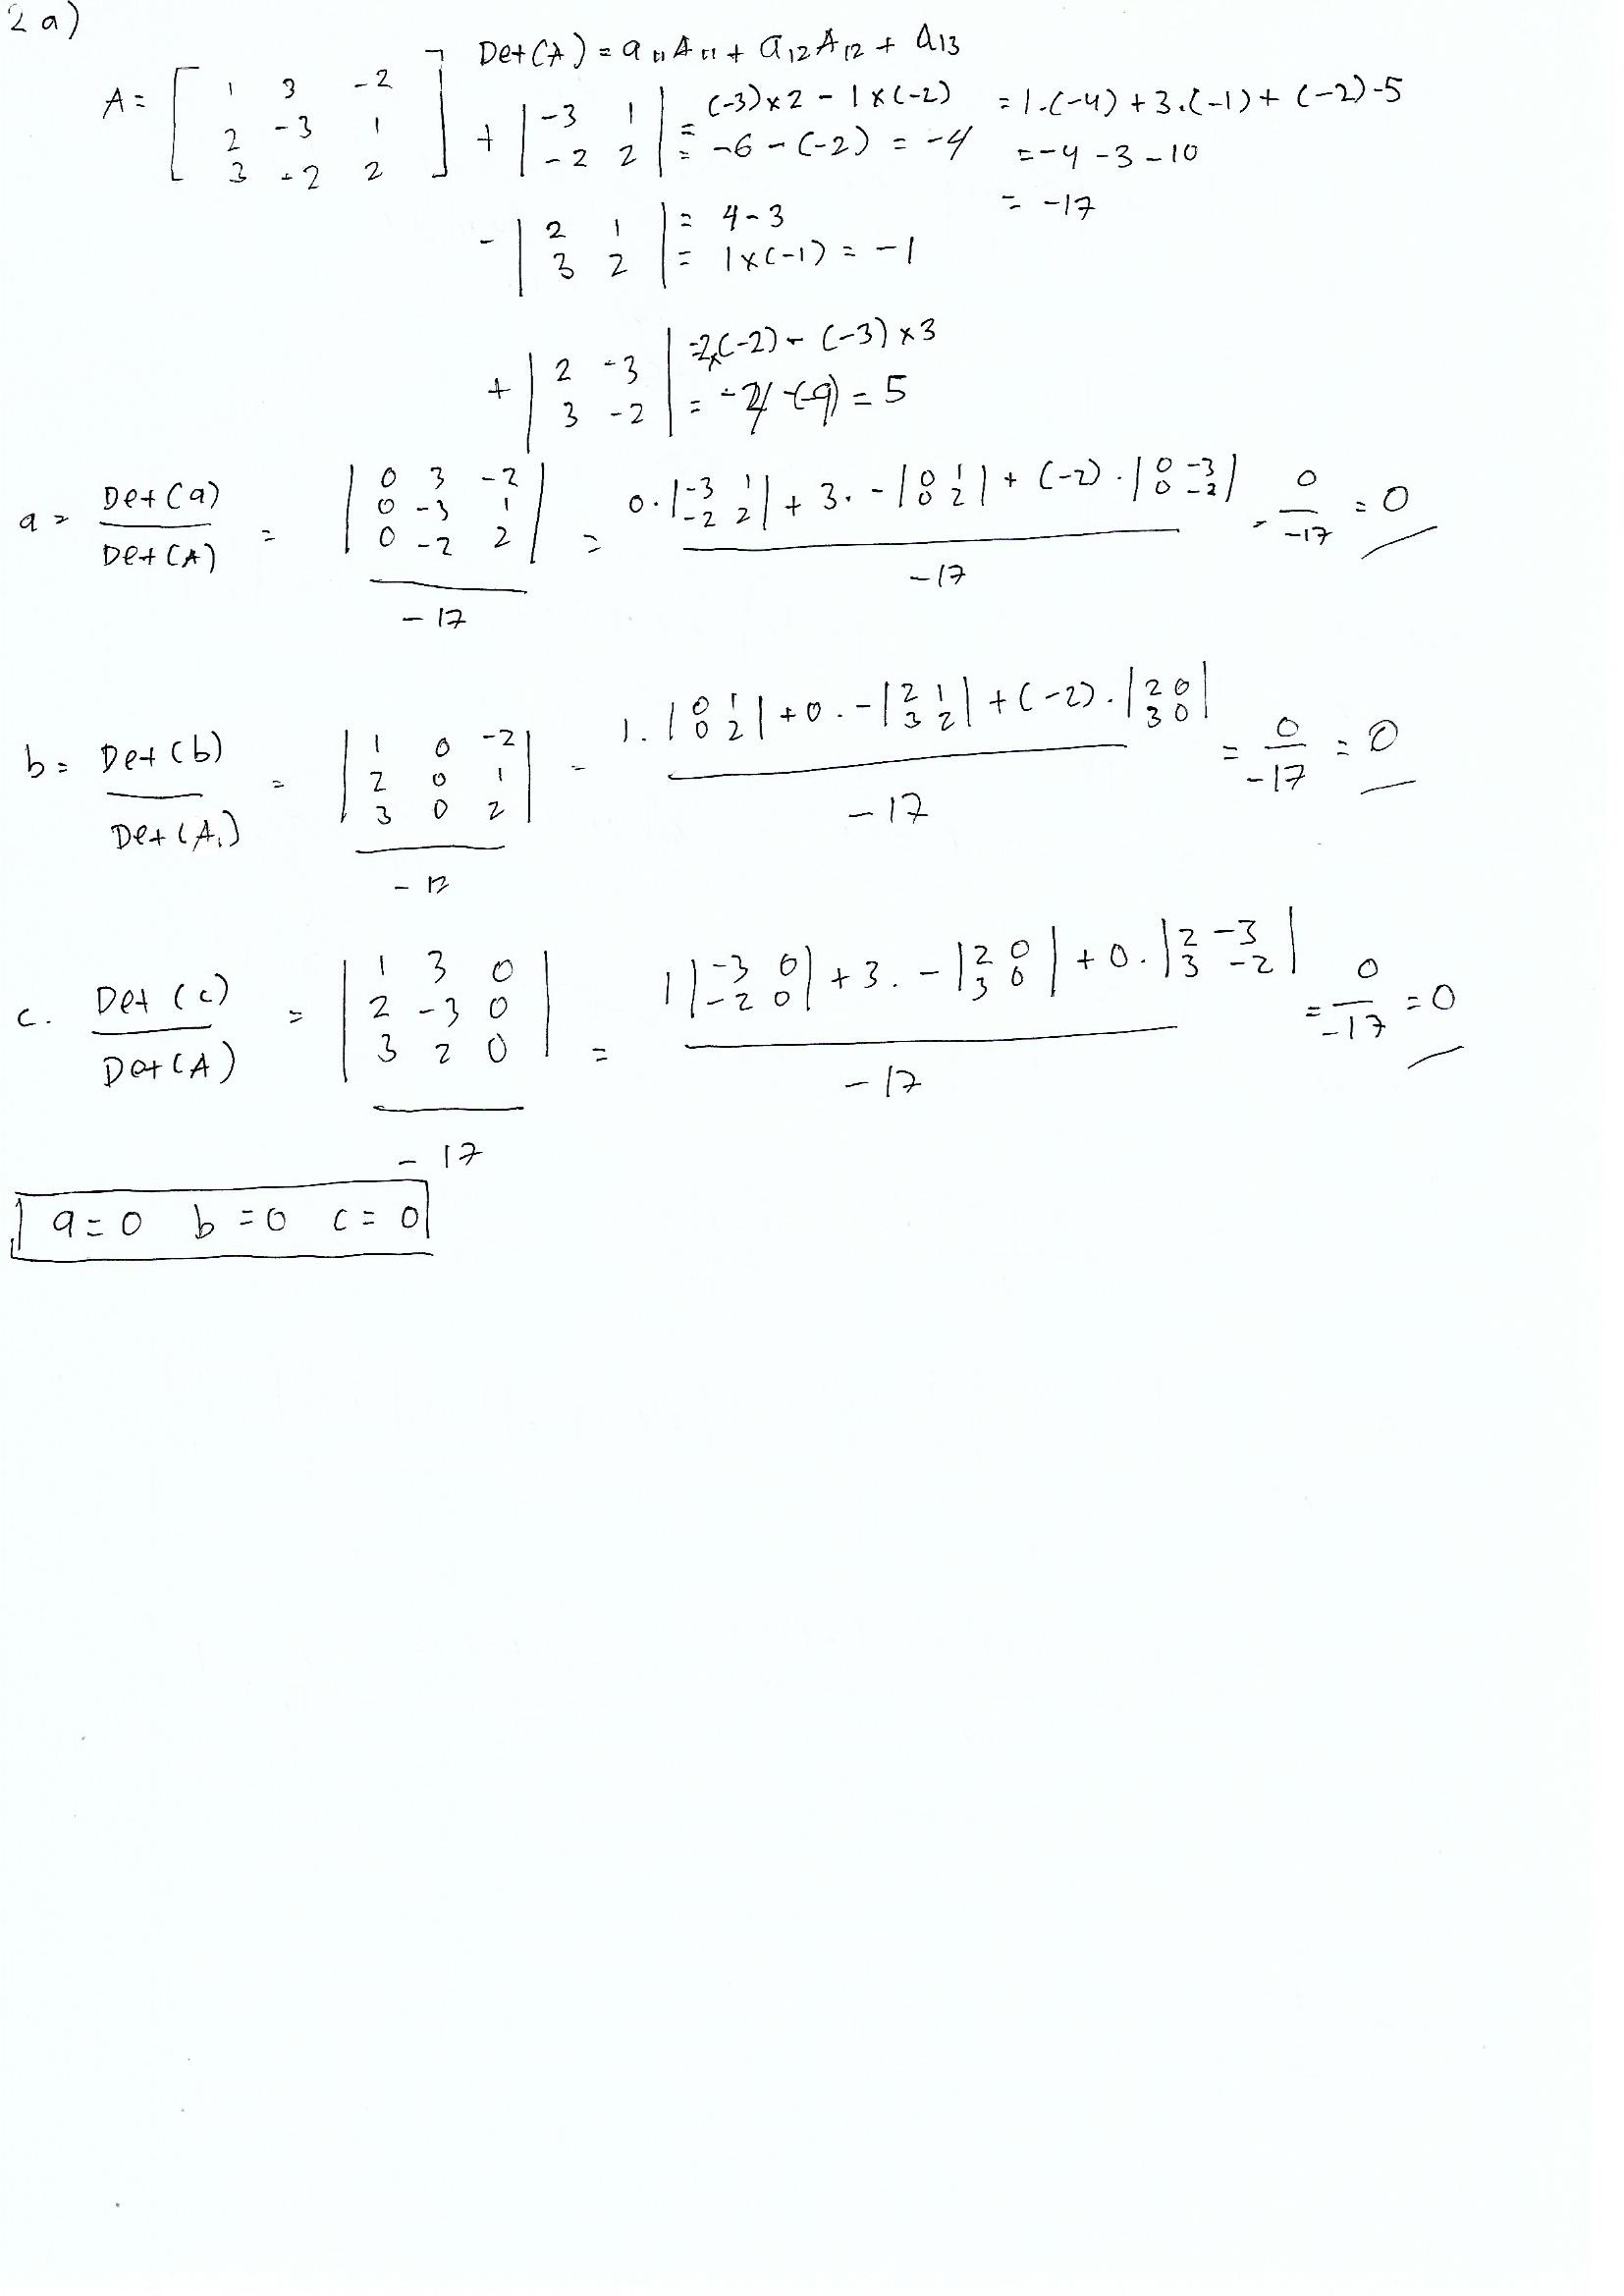 2 a)
A = [ 1 3 -2 ; 2 -3 1 ; 3 -2 2 ]
Det(A) = a11 A11 + a12 A12 + a13
+ | -3 1 ; -2 2 | = (-3)×2 - 1×(-2)
= -6 - (-2) = -4
= 1·(-4) + 3·(-1) + (-2)·5
= -4 - 3 - 10
= -17
- | 2 1 ; 3 2 | = 4-3
= 1×(-1) = -1
+ | 2 -3 ; 3 -2 | 2×(-2) - (-3)×3
= -4 -(-9) = 5
a = Det(a) / Det(A) = | 0 3 -2 ; 0 -3 1 ; 0 -2 2 | / -17 = 0·| -3 1 ; -2 2 | + 3·-| 0 1 ; 0 2 | + (-2)·| 0 -3 ; 0 -2 | / -17 = 0 / -17 = 0
b = Det(b) / Det(A) = | 1 0 -2 ; 2 0 1 ; 3 0 2 | / -17 = 1·| 0 1 ; 0 2 | + 0·-| 2 1 ; 3 2 | + (-2)·| 2 0 ; 3 0 | / -17 = 0 / -17 = 0
c. Det(c) / Det(A) = | 1 3 0 ; 2 -3 0 ; 3 2 0 | / -17 = 1 | -3 0 ; -2 0 | + 3·-| 2 0 ; 3 0 | + 0·| 2 -3 ; 3 -2 | / -17 = 0 / -17 = 0
a = 0 b = 0 c = 0